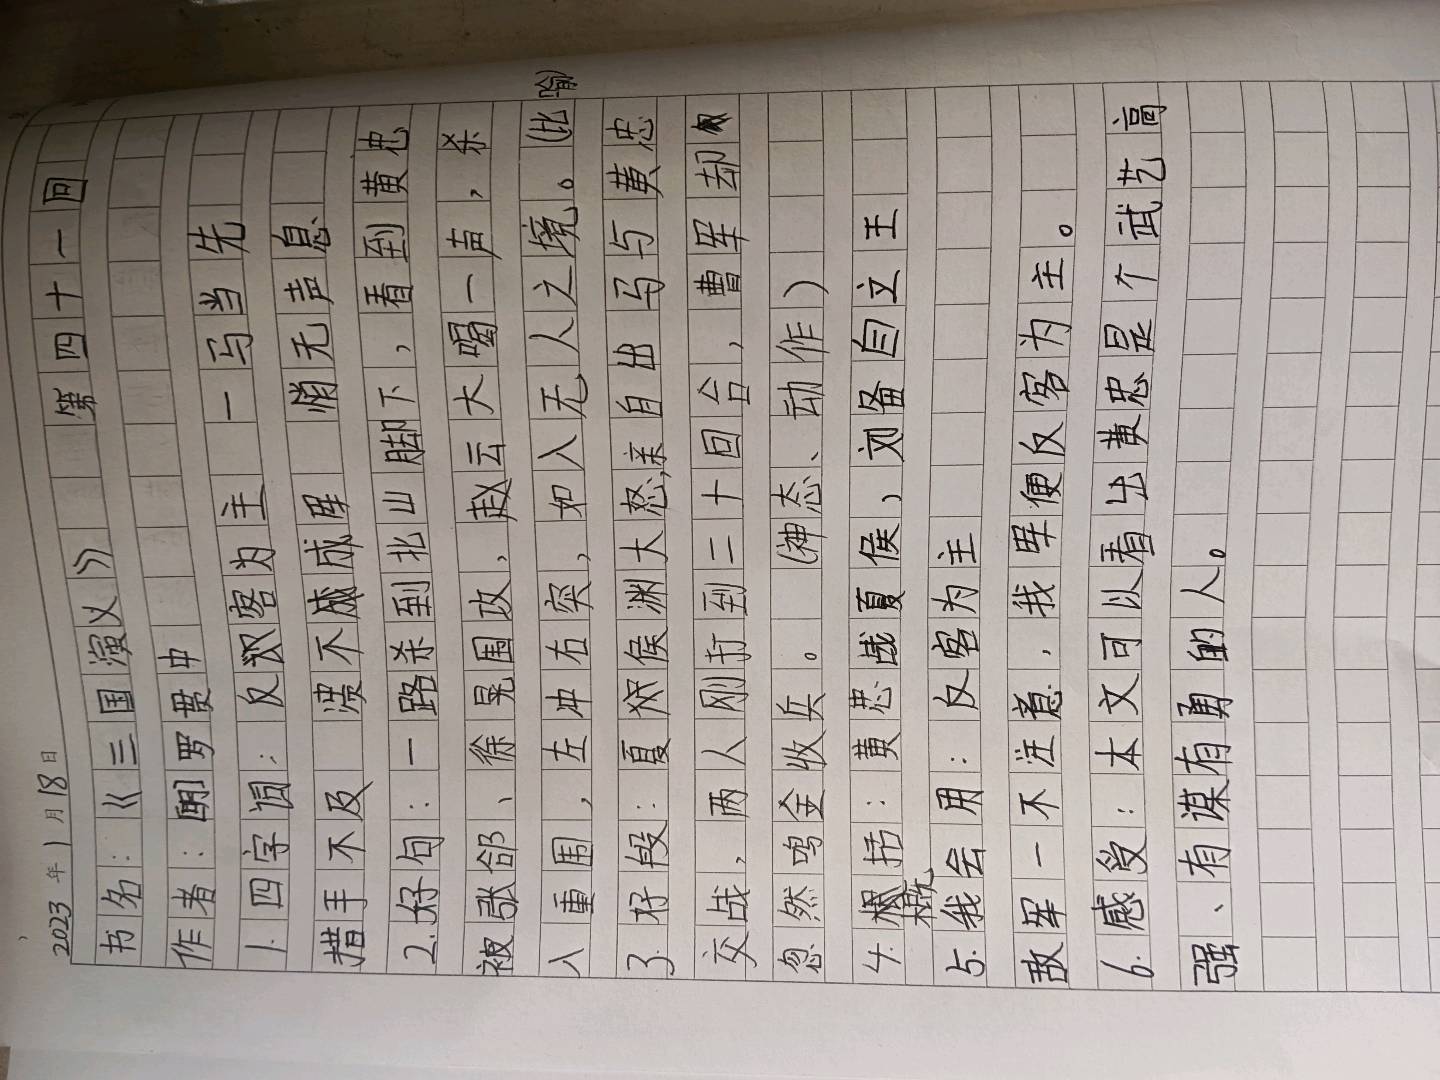 2023年1月18日
书名：《三国演义》 第四十一回
作者：明罗贯中
1.四字词：反客为主 一马当先
措手不及 溃不成军 悄无声息
2.好句：一路杀到北山脚下，看到黄忠
被张郃、徐晃围攻，赵云大喝一声，杀
入重围，左冲右突，如入无人之境。（比喻）
3.好段：夏侯渊大怒，亲自出马与黄忠
交战，两人刚打到二十回合，曹军却
忽然鸣金收兵。（神态、动作）
4.概括：黄忠战夏侯，刘备自立王
5.我会用：反客为主
敌军一不注意，我军便反客为主。
6.感受：本文可以看出黄忠是个武艺高
强、有谋有勇的人。